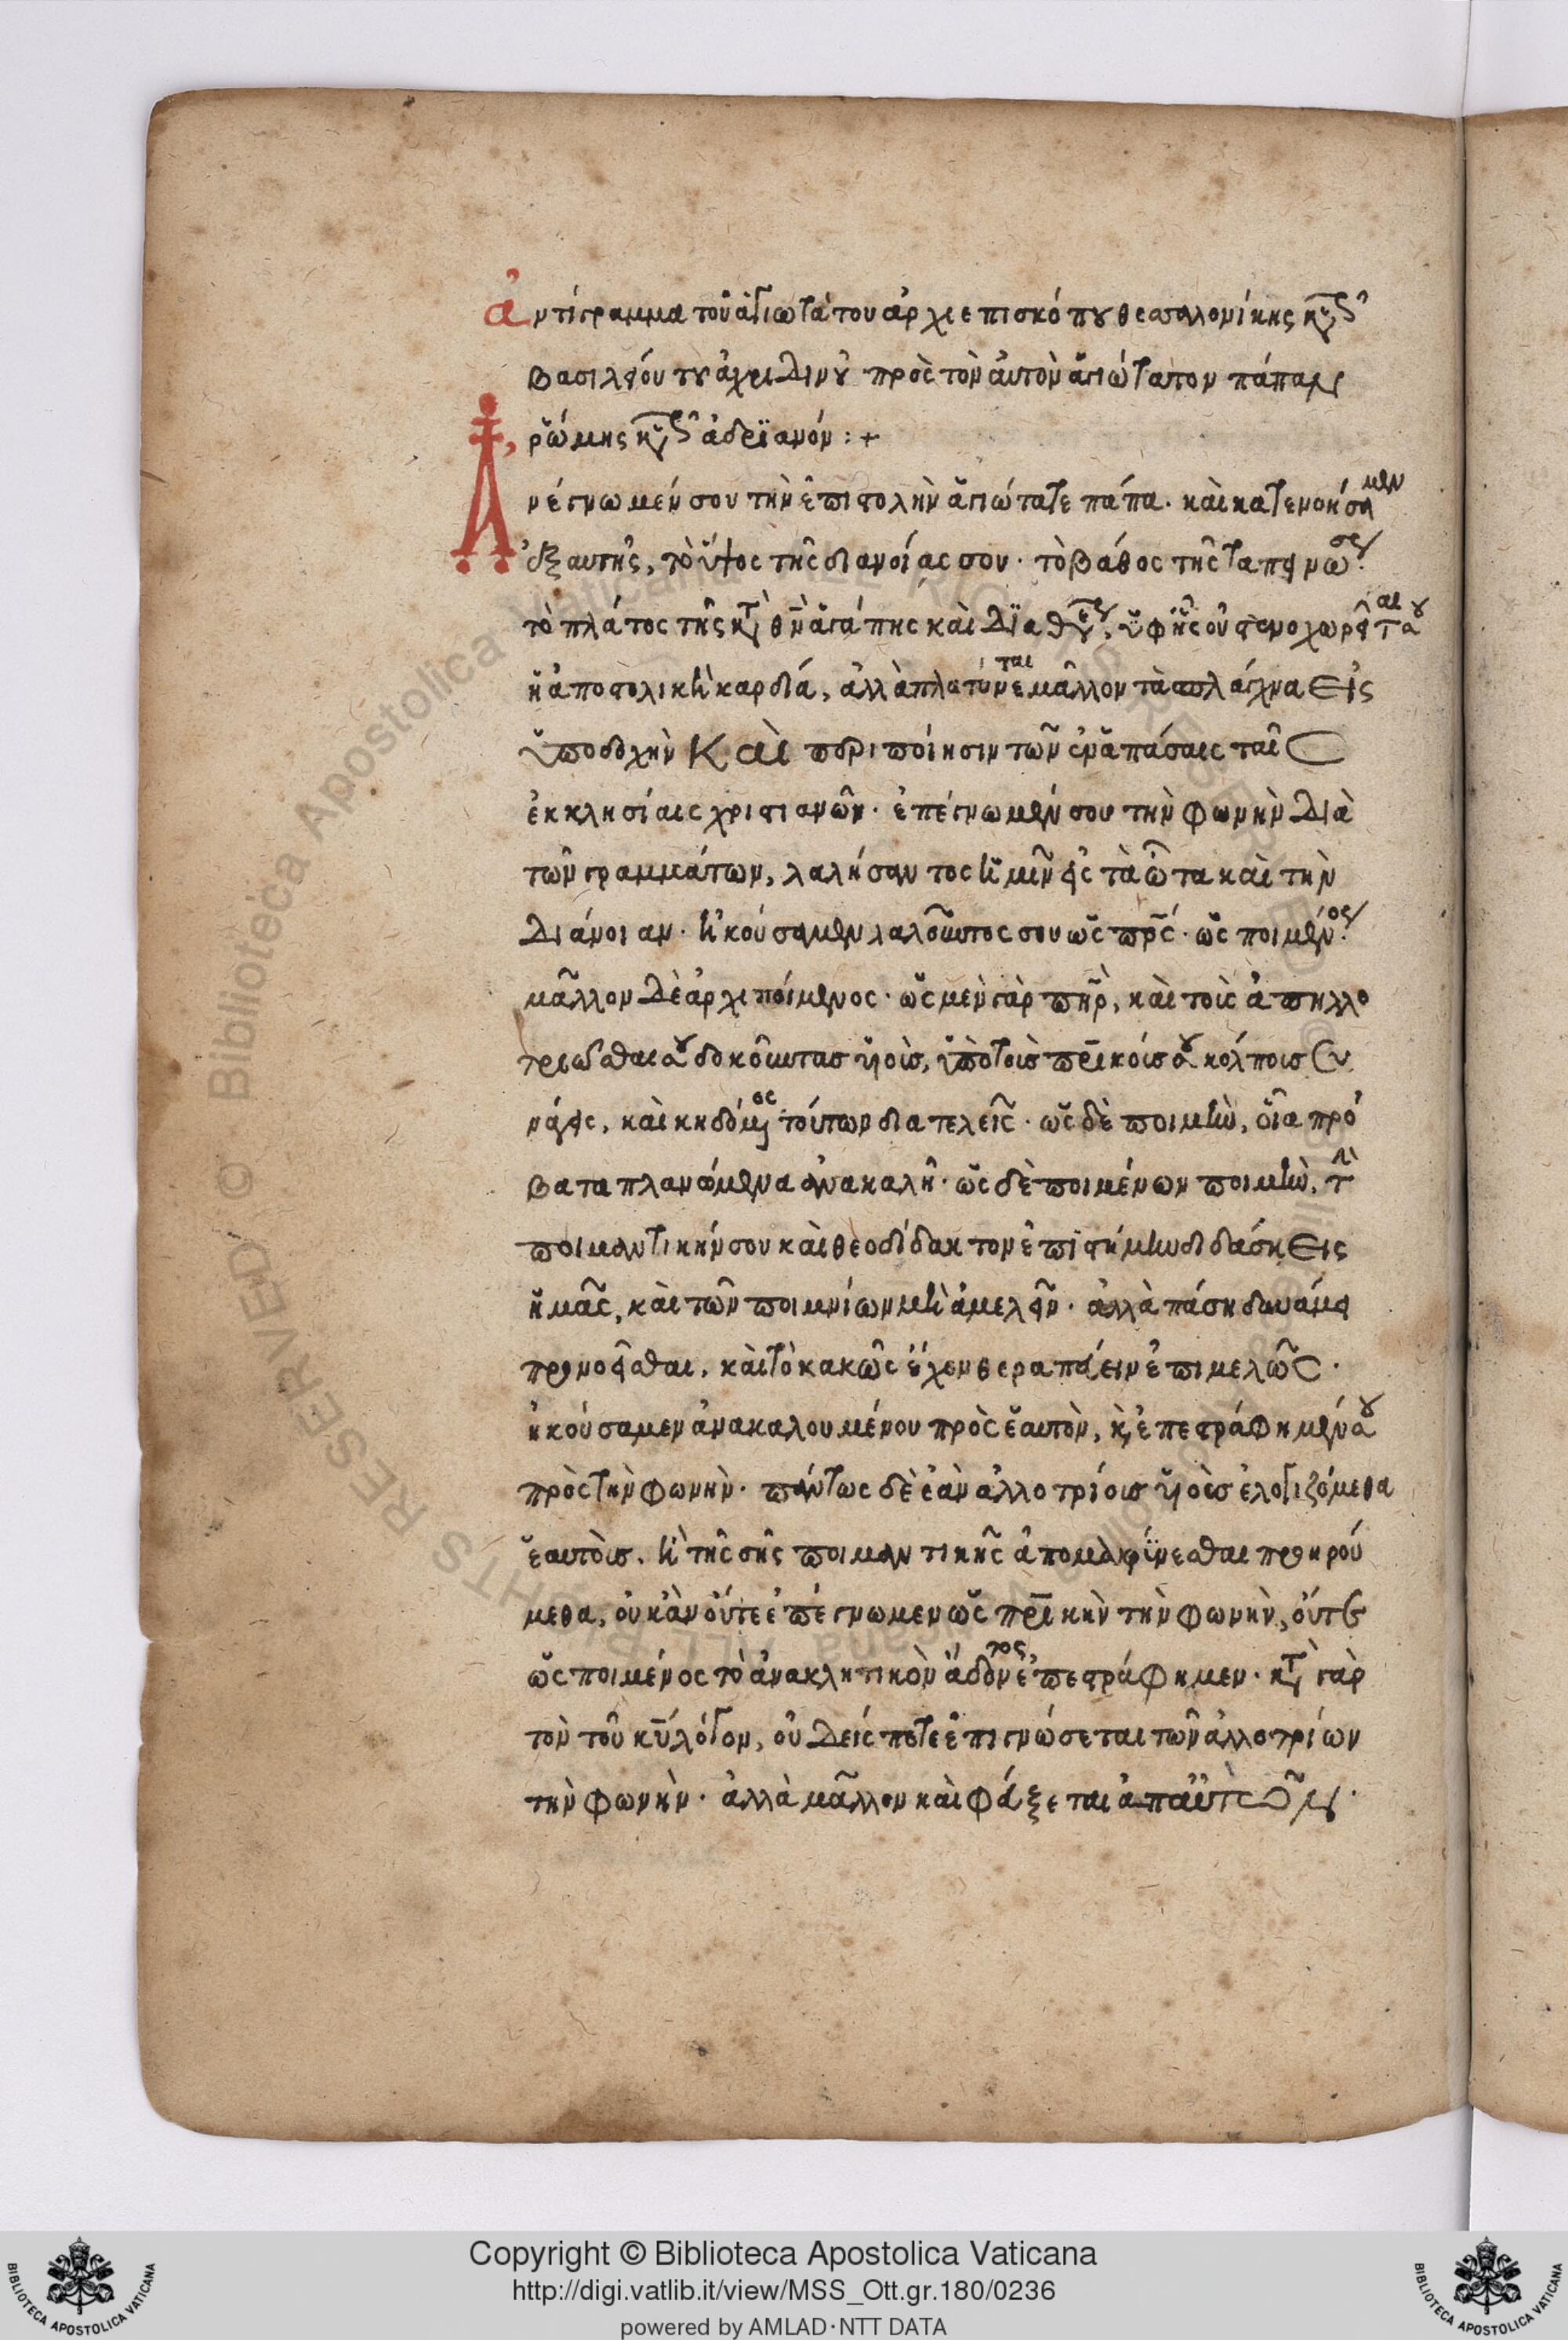 ἀντίγραμμα τοῦ ἁγιωτάτου ἀρχιεπισκόπου θεσσαλονίκης κυροῦ
βασιλείου τοῦ ἀχριδινοῦ πρὸς τὸν αὐτὸν ἁγιώτατον πάπαν
ῥώμης κυρὸν ἀδριανόν :+
Ἀνέγνωμέν σου τὴν ἐπιστολὴν ἁγιώτατε πάπα · καὶ κατενοήσαμεν
ἐξ αυτῆς, τὸ ὕψος τῆς διανοίας σου · τὸ βάθος τῆς ταπεινώσεως ·
τὸ πλάτος τῆς κατὰ θεὸν ἀγάπης καὶ διαθέσεως, ὑφ' ἧς οὐ στενοχωρεῖταί σου
ἡ ἀποστολικὴ καρδιά, ἀλλὰ πλατύνεται μᾶλλον τὰ σπλάγχνα εἰς
ὑποδοχὴν καὶ περιποίησιν τῶν ἐν ἁπάσαις ταῖς
ἐκκλησίαις χριστιανῶν · ἐπέγνωμέν σου τὴν φωνὴν διὰ
τῶν γραμμάτων, λαλήσαντος ἡμῖν εἰς τὰ ὦτα καὶ τὴν
διάνοιαν · ἠκούσαμεν λαλοῦντος σου ὡς πρς · ὡς ποιμένος ·
μᾶλλον δὲ ἀρχιποίμενος · ὡς μὲν γὰρ πηρ, καὶ τοὶς ἀπηλλο
τριῶσθαί σου δοκοῦντας υἱοὶς, ὑπὸ τοὶς πρικοίς σου κόλποις συ
νάγεις, καὶ κηδόμενος τούτων διατελεῖς · ὡς δὲ ποιμὴν, οἷα πρό
βατα πλανόμενα ἀνακαλῆ · ὡς δὲ ποιμένων ποιμὴν, τὴν
ποιμαντικήν σου καὶ θεοδίδακτον ἐπιστήμην διδάσκεις
ἡμᾶς, καὶ τῶν ποιμνίων μὴ ἀμελεῖν · ἀλλὰ πάση δυνάμει
προνοεῖσθαι, καὶ τὸ κακῶς ἔχον θεραπεύειν ἐπιμελῶς ·
ἠκούσαμεν ἀνακαλουμένου πρὸς ἑαυτὸν, κ ἐπεστράφημέν σου
πρὸς τὴν φωνὴν · πάντως δὲ ἐὰν ἀλλοτρίοις υἱοὶς ἐλογιζόμεθα
ἑαυτοὶς. ἢ τῆς σῆς ποιμαντικῆς ἀπομακρύνεσθαι προηρού
μεθα, οὐκ ἂν οὔτε ἐπέγνωμεν ὡς πρικὴν τὴν φωνὴν, οὔτε
ὡς ποιμένος τὸ ἀνακλητικὸν ἄδοντος ἐπεστράφημεν · κατὰ γὰρ
τὸν τοῦ κυ λόγον, οὐδείς ποτε ἐπιγνώσεται τῶν ἀλλοτρίων
τὴν φωνὴν · ἀλλὰ μᾶλλον καὶ φεύξεται ἀπ' αὐτῶν ·
Copyright © Biblioteca Apostolica Vaticana
http://digi.vatlib.it/view/MSS_Ott.gr.180/0236
powered by AMLAD·NTT DATA